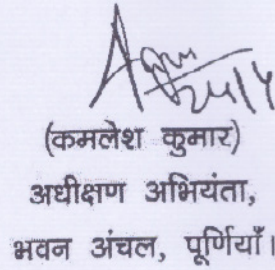 24/4
(कमलेश कुमार)
अधीक्षण अभियंता,
भवन अंचल, पूर्णियाँ।